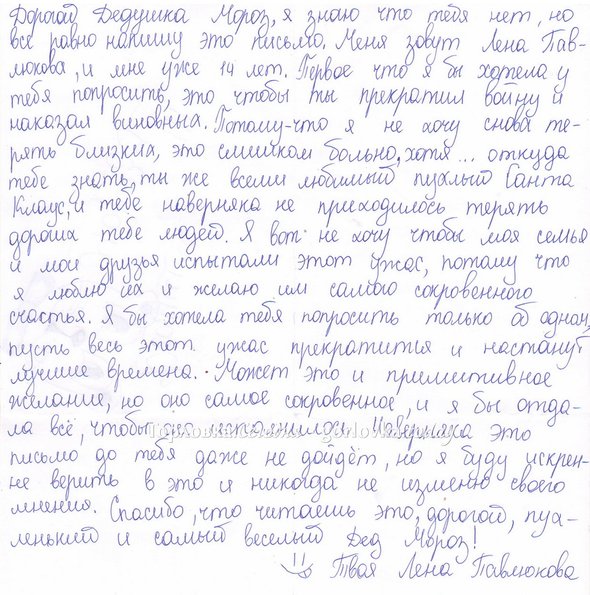 Дорогой Дедушка Мороз, я знаю что тебя нет, но
всё равно напишу это письмо. Меня зовут Лена Пав-
люкова, и мне уже 14 лет. Первое что я бы хотела у
тебя попросить, это чтобы ты прекратил войну и
наказал виновных. Потому-что я не хочу снова те-
рять близких, это слишком больно, хотя... откуда
тебе знать, ты же всеми любимый пухлый Санта
Клаус, и тебе наверняка не приходилось терять
дорогих тебе людей. Я вот не хочу чтобы моя семья
и мои друзья испытали этот ужас, потому что
я люблю их и желаю им самого сокровенного
счастья. Я бы хотела тебя попросить только об одном,
пусть весь этот ужас прекратиться и настанут
лучшие времена. Может это и примитивное
желание, но оно самое сокровенное, и я бы отда-
ла всё, чтобы оно исполнилось. Наверняка это
письмо до тебя даже не дойдёт, но я буду искрен-
не верить в это и никогда не изменю своего
мнения. Спасибо, что читаешь это, дорогой, пух-
ленький и самый веселый Дед Мороз!
Твоя Лена Павлюкова